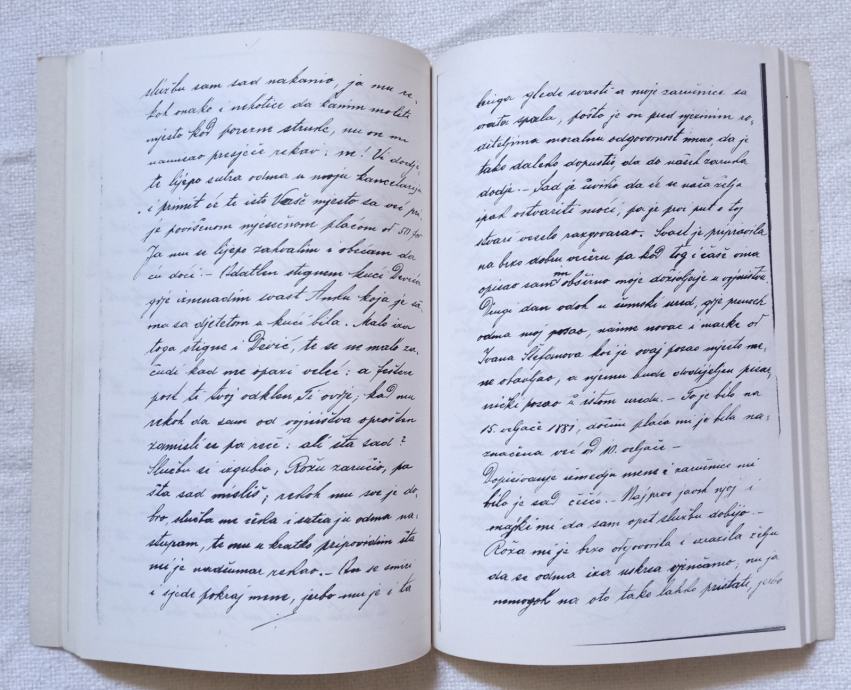 službu sam sad nakanio, ja mu re-
koh onako i nehotice da kanim moliti
mjesto kod porezne struke, nu on me
namrsao presječe rekav: ne! Vi dodji-
te lijepo sutra odma u moju kancelariju
i primit će te isto Vaše mjesto sa već pri-
je povišenom mjesečnom plaćom od 50 for
Ja mu se lijepo zahvalim i obećam da
ću doći. – Udatlen stignem kući Devića
gdje iznenadim svast Anku koja je sa-
ma sa djetetom u kući bila. Malo iza
toga stigne i Dević, te se ne malo za-
čudi kad me opazi veleć: a
post ti tvoj odaklen Ti ovdje; kad mu
rekoh da sam od vojništva oprošten
zamisli se pa reče: ali šta sad?
Službu se izgubio, Rožu zaručio, pa
šta sad misliš; rekoh mu sve je do-
bro, služba me čeka i sutra ju odma na-
stupam, te mu u kratko pripovidim šta
mi je nadšumar rekao. – On se smiri
i sjede pokraj mene, jerbo mu je i ta
briga glede svasti a moje zaručnice sa
vrata spala, pošto je on pred njezinim ro-
diteljima moralnu odgovornost imao, da je
tako daleko dopustio, da do naših zaruka
dodje. – Sad je uvidio da će se naša želja
ipak ostvariti moći, pa je prvi put o toj
stvari veselo razgovarao. Svast je pripravila
na brzo dobru večeru pa kod tog i čaše vina
opisao sam im obširno moje doživljaje u vojništvu.
Drugi dan odoh u šumski ured, gdje preuzeh
odma moj posao, naime novac i marke od
Ivana Štefanova koi je ovaj posao mjesto me-
ne obavljao, a njemu bude dodijeljen pisar-
nički posao u istom uredu. – To je bilo na
15. veljače 1881, dočim plaća mi je bila na-
značena već od 10. veljače –
Dopisivanje izmedju mene i zaručnice mi
bilo je sad češće. – Najprvo javih njoj i
majki mi da sam opet službu dobijo. –
Roža mi je brzo odgovorila i izrazila želju
da se odma iza uskrsa vjenčamo; nu ja
nemogoh na oto tako lahko pristati, jerbo